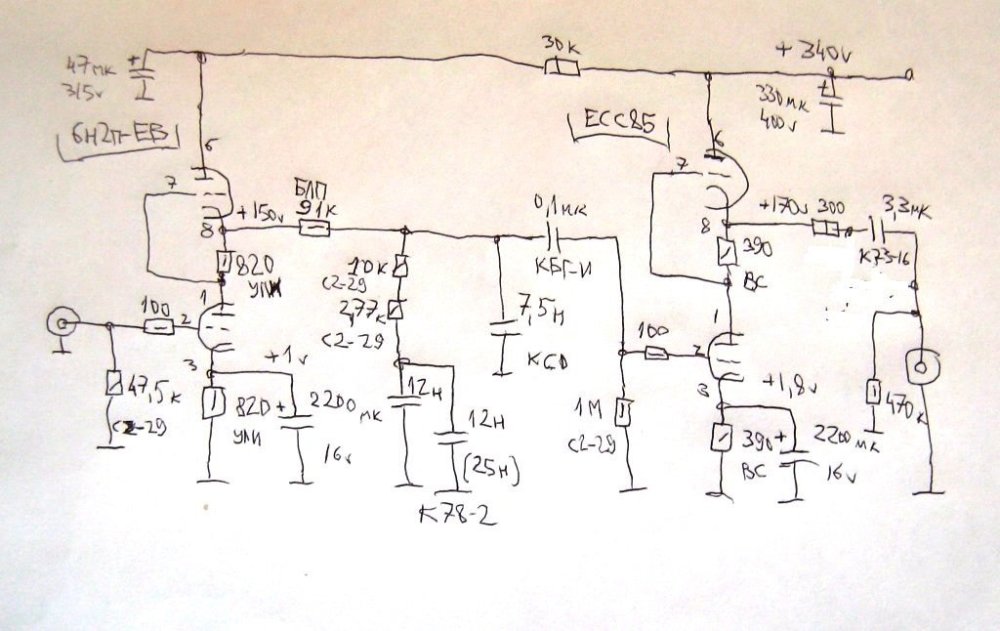 30к
+340v
47мк
315v
+
330мк
400v
+
6Н2П-ЕВ
ECC85
6
7
8
+150v
БЛП
91к
820
УЛИ
1
2
3
100
47,5к
С2-29
+1v
820
УЛИ
+
2200мк
16v
10к
С2-29
2,77к
С2-29
12н
12н
(25н)
К78-2
7,5н
КСО
0,1мк
КБГ-И
1М
С2-29
100
6
7
8
+170v
300
3,3мк
К73-16
390
ВС
1
2
3
+1,8v
390
ВС
+
2200мк
16v
470к